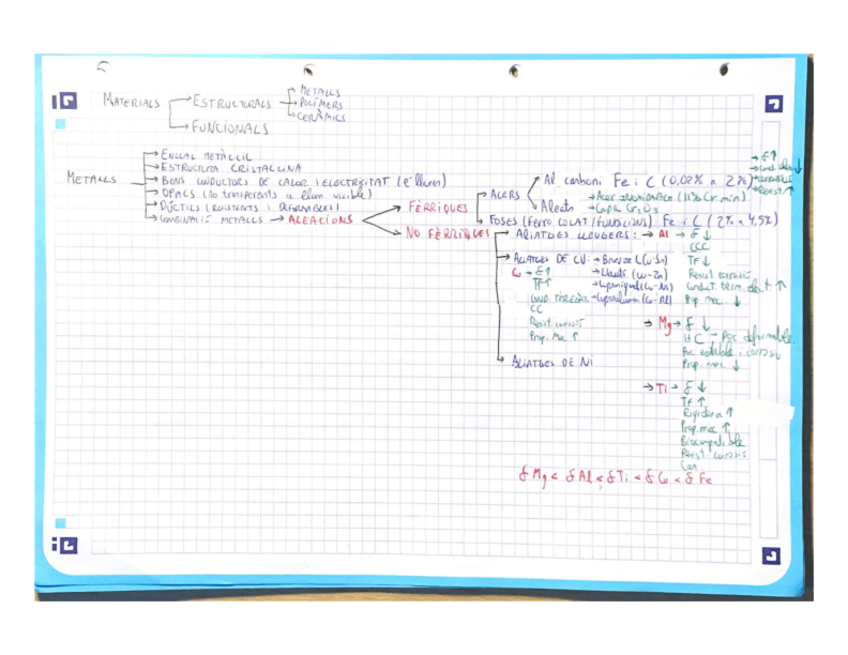 MATERIALS → ESTRUCTURALS → METALLS
→ POLÍMERS
→ CERÀMICS
→ FUNCIONALS
METALLS → ENLLAÇ METÀL·LIC
→ ESTRUCTURA CRISTAL·LINA
→ BONS CONDUCTORS DE CALOR i ELECTRICITAT (e- lliures)
→ OPACS (No transparents a llum visible)
→ DÚCTILS (RESISTENTS i DEFORMABLES)
→ COMBINACIÓ METALLS → ALEACIONS
→ FÈRRIQUES → ACERS → Al carboni Fe i C (0,02% a 2%)
→ Aleats → Acer inoxidable (11% Cr mín)
→ Capa Cr2O3
→ Foses (Ferro COLAT / FUNDICIONS) Fe i C (2% a 4,5%)
→ δ↑
→ Resist ↑
→ NO FÈRRIQUES → ALIATGES LLEUGERS: → Al → δ ↓
CCC
TF ↓
Resist corrosió
Conduct tèrm. elect ↑
Prop. mec ↓
→ ALIATGES DE CU: → Bronze (Cu-Sn)
→ Llautó (Cu-Zn)
→ Cuproníquel (Cu-Ni)
→ Cuproalumini (Cu-Al)
Cu → δ↑
TF↑
COND. TÈRMICA
CC
Resist. corrosió
Prop. Mec ↑
→ Mg → δ ↓
HC → Poc deformable
Poc estable i corrosiu
Prop. mec ↓
→ ALIATGES DE Ni
→ Ti → δ ↓
TF ↑
Rigidesa ↑
Prop. mec ↑
Biocompatible
Resist. corrosió
Car
δ Mg < δ Al < δ Ti < δ Cu < δ Fe